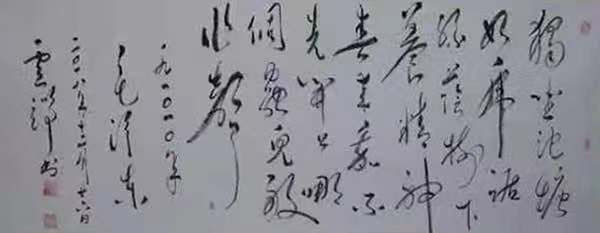 獨坐池塘
如虎踞
綠蔭树下
養精神
春来我不
先開口哪
個蟲兒敢
作聲
一九一〇年
毛泽东
二〇一八年十二月廿六日
书